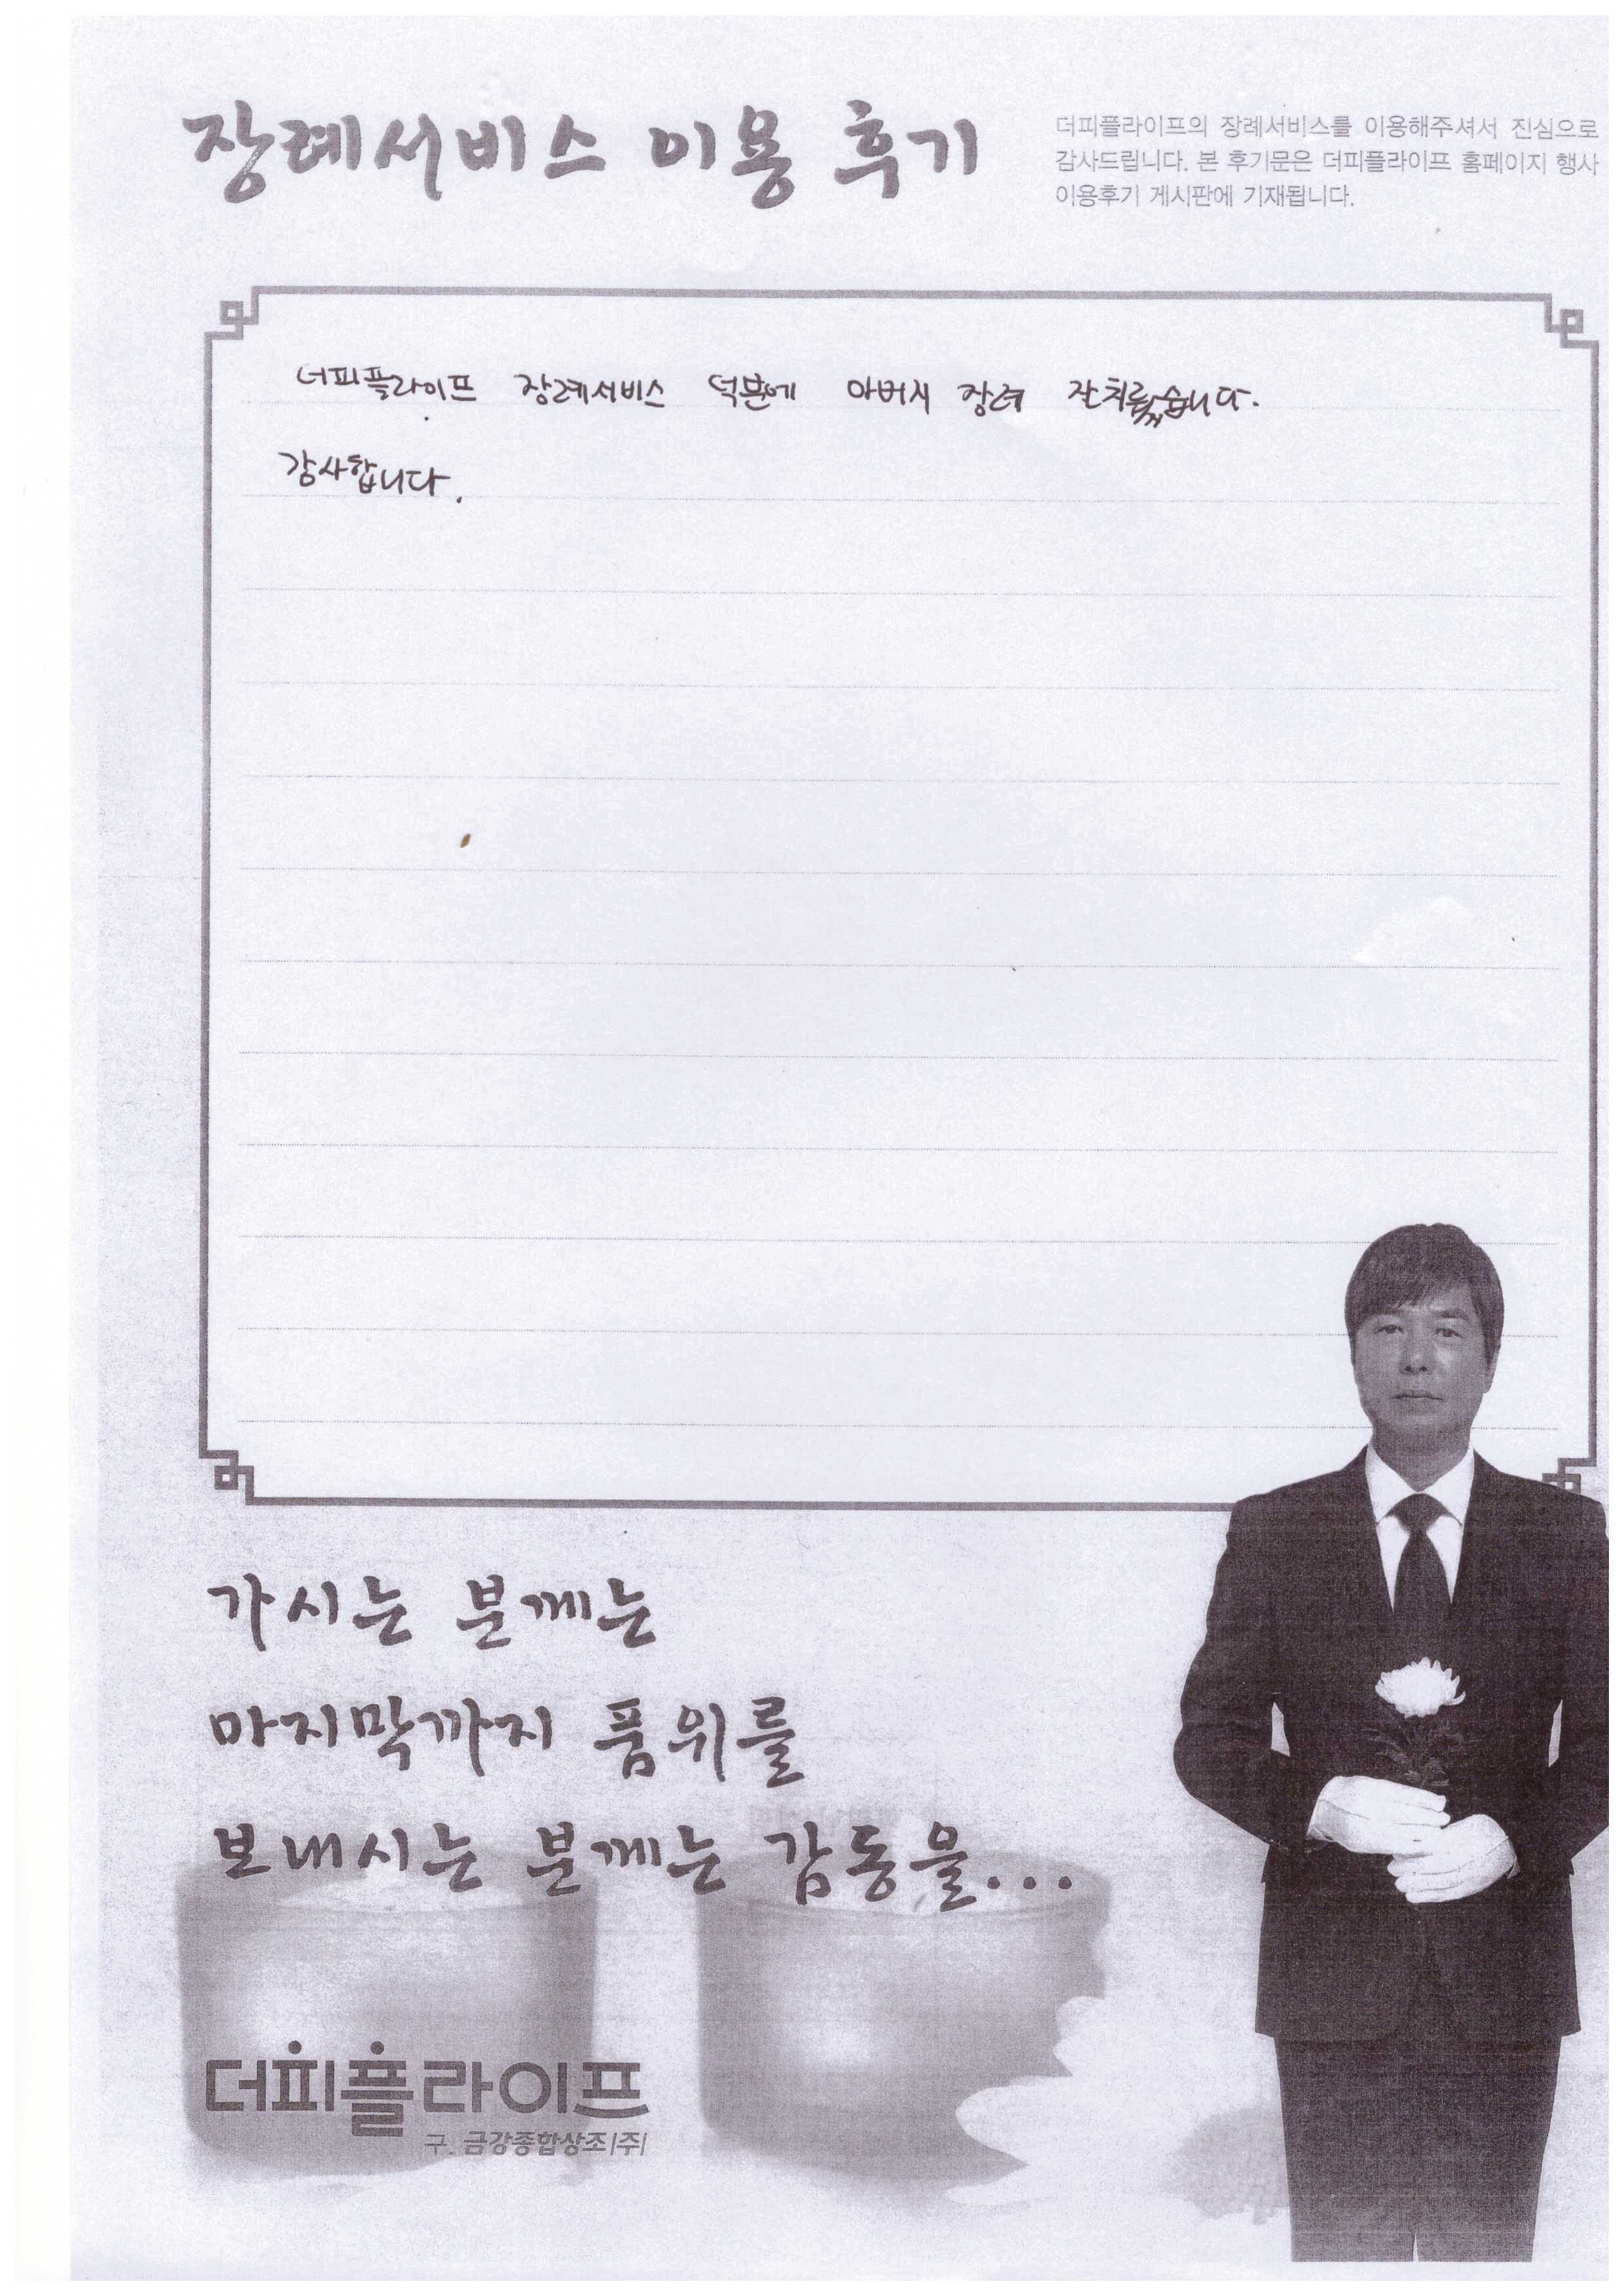 장례서비스 이용 후기
더피플라이프의 장례서비스를 이용해주셔서 진심으로
감사드립니다. 본 후기문은 더피플라이프 홈페이지 행사
이용후기 게시판에 기재됩니다.
더피플라이프 장례서비스 덕분에 아버지 장례 잔치렀습니다.
감사합니다.
가시는 분께는
마지막까지 품위를
보내시는 분께는 감동을...
더피플라이프
구. 금강종합상조|주|